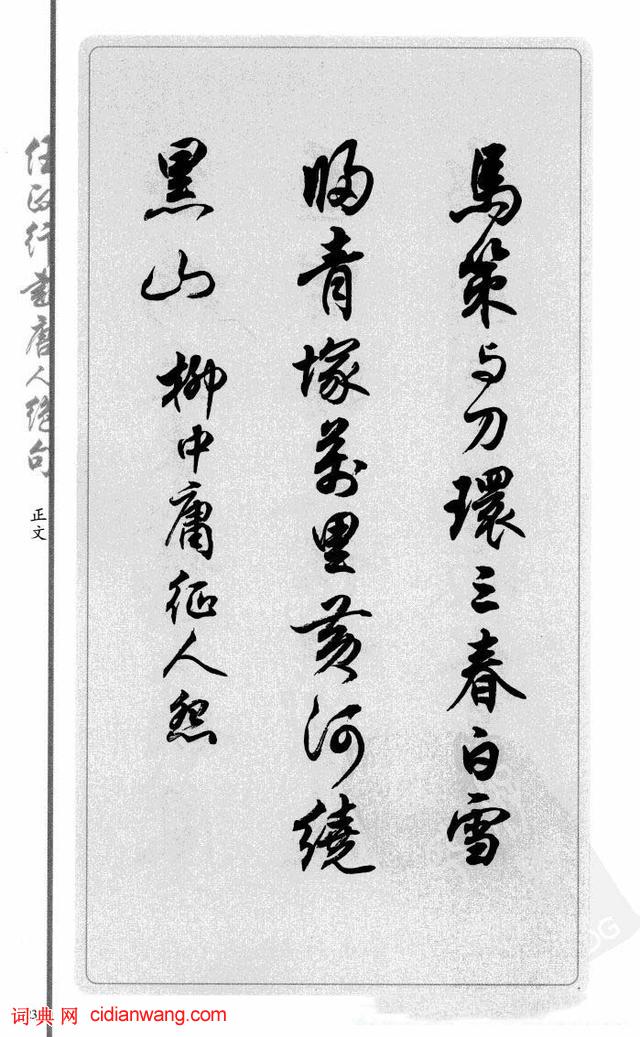 馬策与刀環三春白雪
歸青塚萬里黄河繞
黑山 柳中庸征人怨
任政行書唐人绝句
正文
3
词典网 cidianwang.com